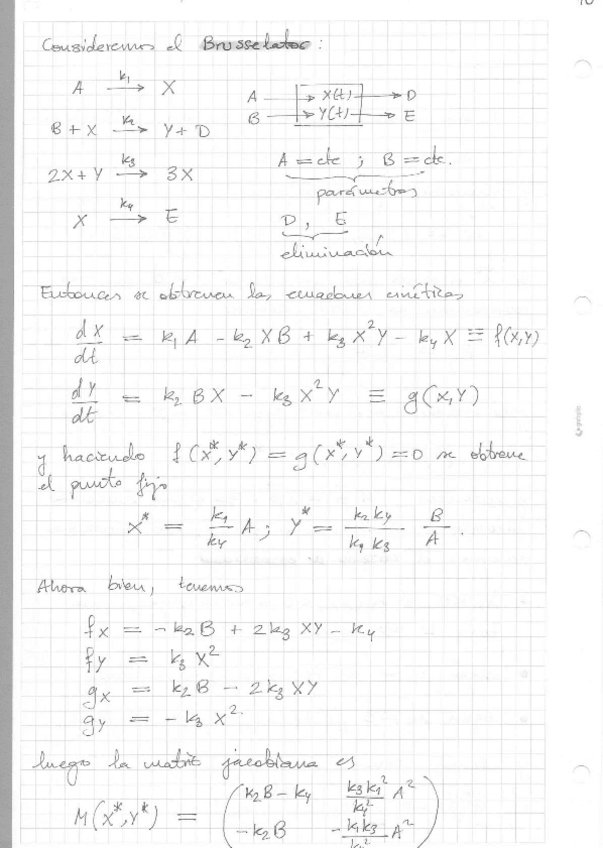 10
Consideremos el Brusselator:
A —k₁→ X
B + X —k₂→ Y + D
2X + Y —k₃→ 3X
X —k₄→ E
A → X(t) → D
B → Y(t) → E
A = cte ; B = cte.
parámetros
D, E
eliminación
Entonces se obtienen las ecuaciones cinéticas
dX/dt = k₁A - k₂XB + k₃X²Y - k₄X ≡ f(X,Y)
dY/dt = k₂BX - k₃X²Y ≡ g(X,Y)
y haciendo f(X*,Y*) = g(X*,Y*) = 0 se obtiene
el punto fijo
X* = k₁/k₄ A ; Y* = k₂k₄/k₁k₃ B/A .
Ahora bien, tenemos
fx = -k₂B + 2k₃XY - k₄
fy = k₃X²
gx = k₂B - 2k₃XY
gy = -k₃X².
luego la matriz jacobiana es
M(X*,Y*) = ( k₂B - k₄ k₃k₁²/k₄² A²
-k₂B -k₁k₃/k₄² A² )